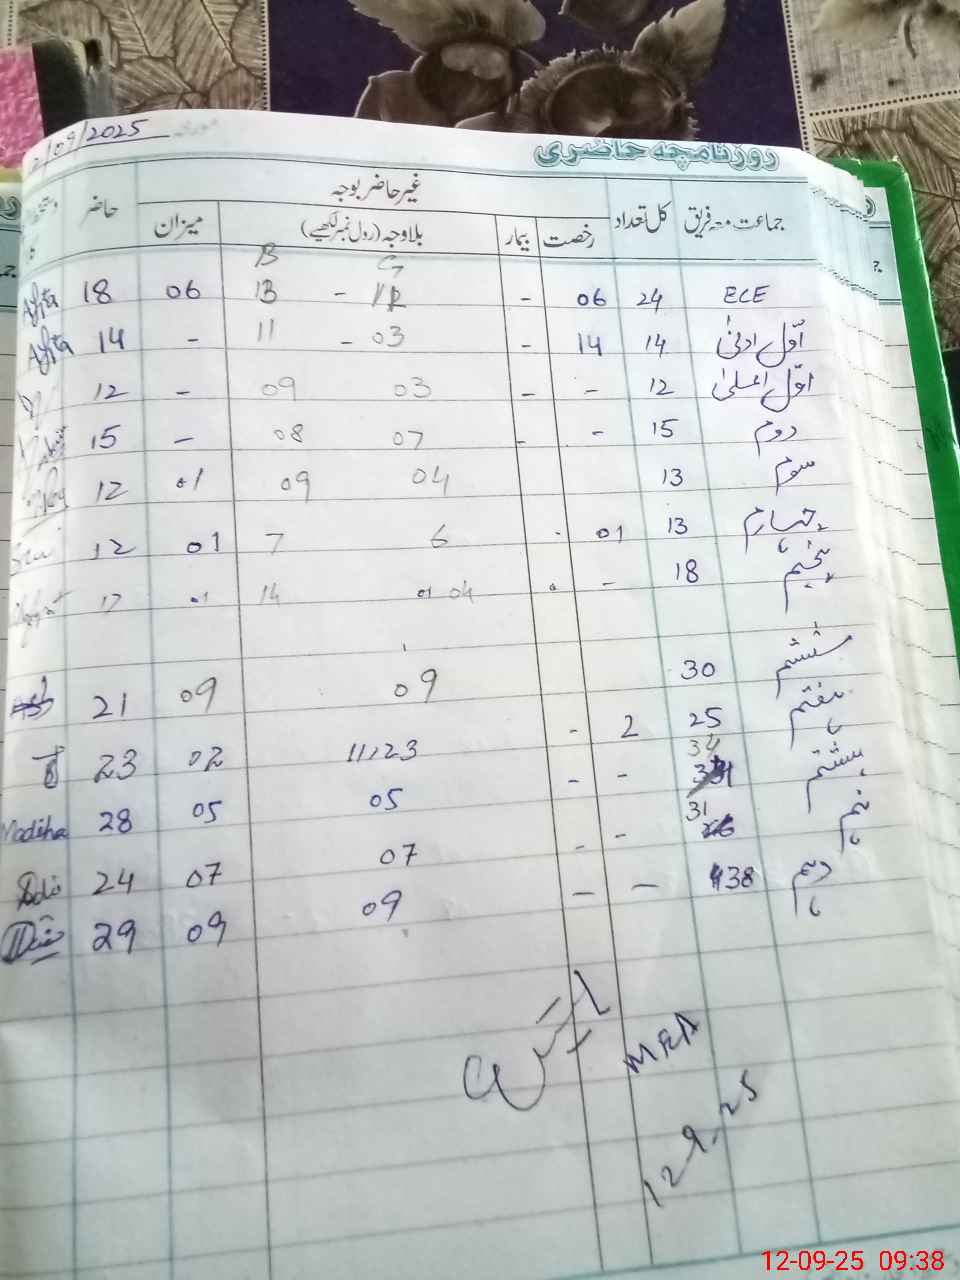 12/09/2025 مورخہ
روزنامچہ حاضری
جماعت معہ فریق کل تعداد غیر حاضر بوجہ حاضر
رخصت بیمار بلاوجہ (رول نمبر لکھیے) میزان
B G
ECE 24 06 - - 06 18
اوّل ادنیٰ 14 14 - 11 - 03 - 14
اوّل اعلیٰ 12 - - 09 03 - 12
دوم 15 - - 08 07 - 15
سوم 13 09 04 01 12
چہارم 13 01 . 7 6 01 12
پنجم 18 - . 14 01 04 01 17
ششم 30 09 09 21
ہفتم 25 2 - 11,23 02 23
ہشتم 34 - - 05 05 28 Madiha
نہم 31 - - 07 07 24
دہم 38 - - 09 09 29
MEA
12.9.25
12-09-25 09:38